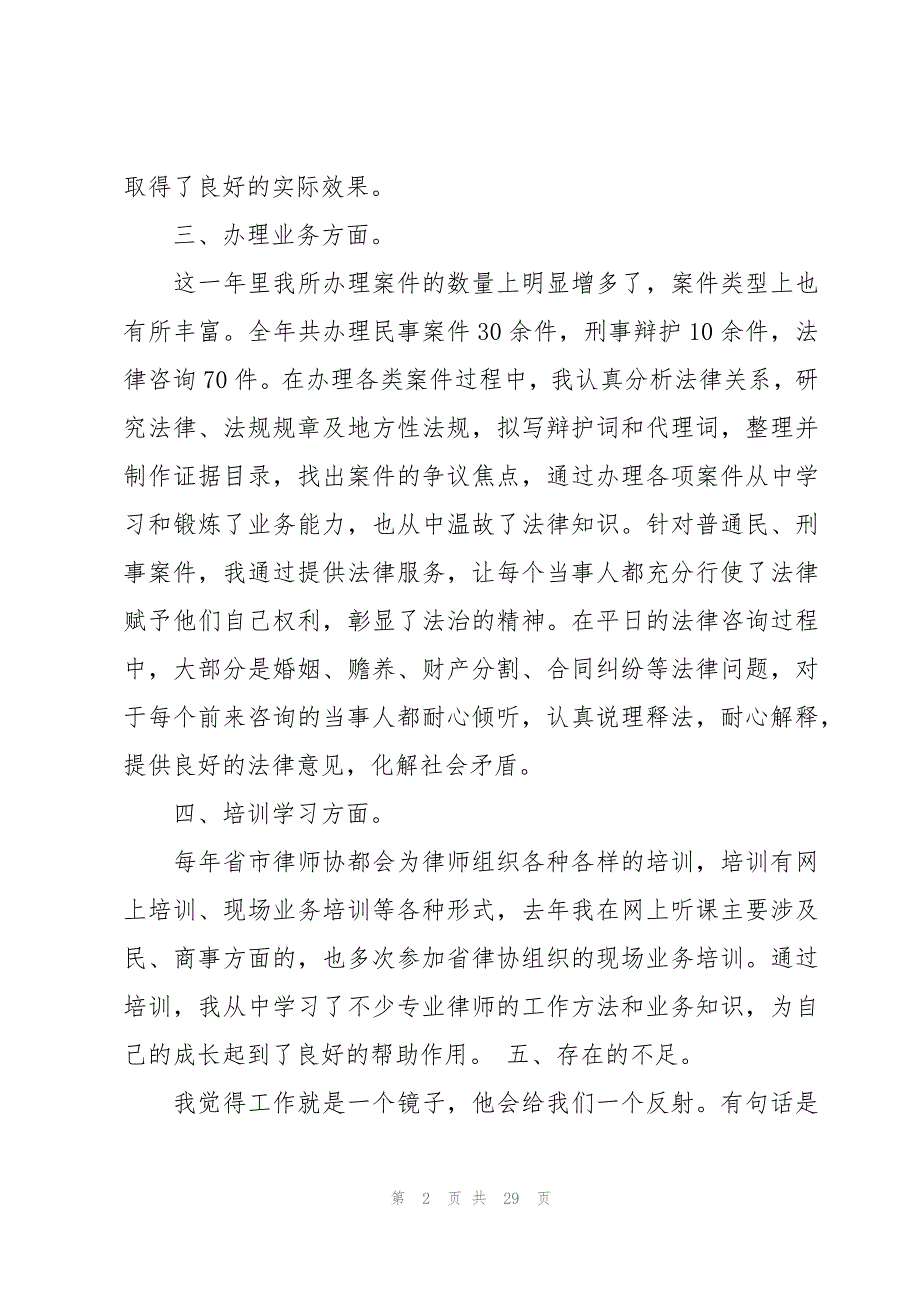 取得了良好的实际效果。
三、办理业务方面。
这一年里我所办理案件的数量上明显增多了，案件类型上也
有所丰富。全年共办理民事案件 30 余件，刑事辩护 10 余件，法
律咨询 70 件。在办理各类案件过程中，我认真分析法律关系，研
究法律、法规规章及地方性法规，拟写辩护词和代理词，整理并
制作证据目录，找出案件的争议焦点，通过办理各项案件从中学
习和锻炼了业务能力，也从中温故了法律知识。针对普通民、刑
事案件，我通过提供法律服务，让每个当事人都充分行使了法律
赋予他们自己权利，彰显了法治的精神。在平日的法律咨询过程
中，大部分是婚姻、赡养、财产分割、合同纠纷等法律问题，对
于每个前来咨询的当事人都耐心倾听，认真说理释法，耐心解释，
提供良好的法律意见，化解社会矛盾。
四、培训学习方面。
每年省市律师协都会为律师组织各种各样的培训，培训有网
上培训、现场业务培训等各种形式，去年我在网上听课主要涉及
民、商事方面的，也多次参加省律协组织的现场业务培训。通过
培训，我从中学习了不少专业律师的工作方法和业务知识，为自
己的成长起到了良好的帮助作用。 五、存在的不足。
我觉得工作就是一个镜子，他会给我们一个反射。有句话是
第 2 页 共 29 页